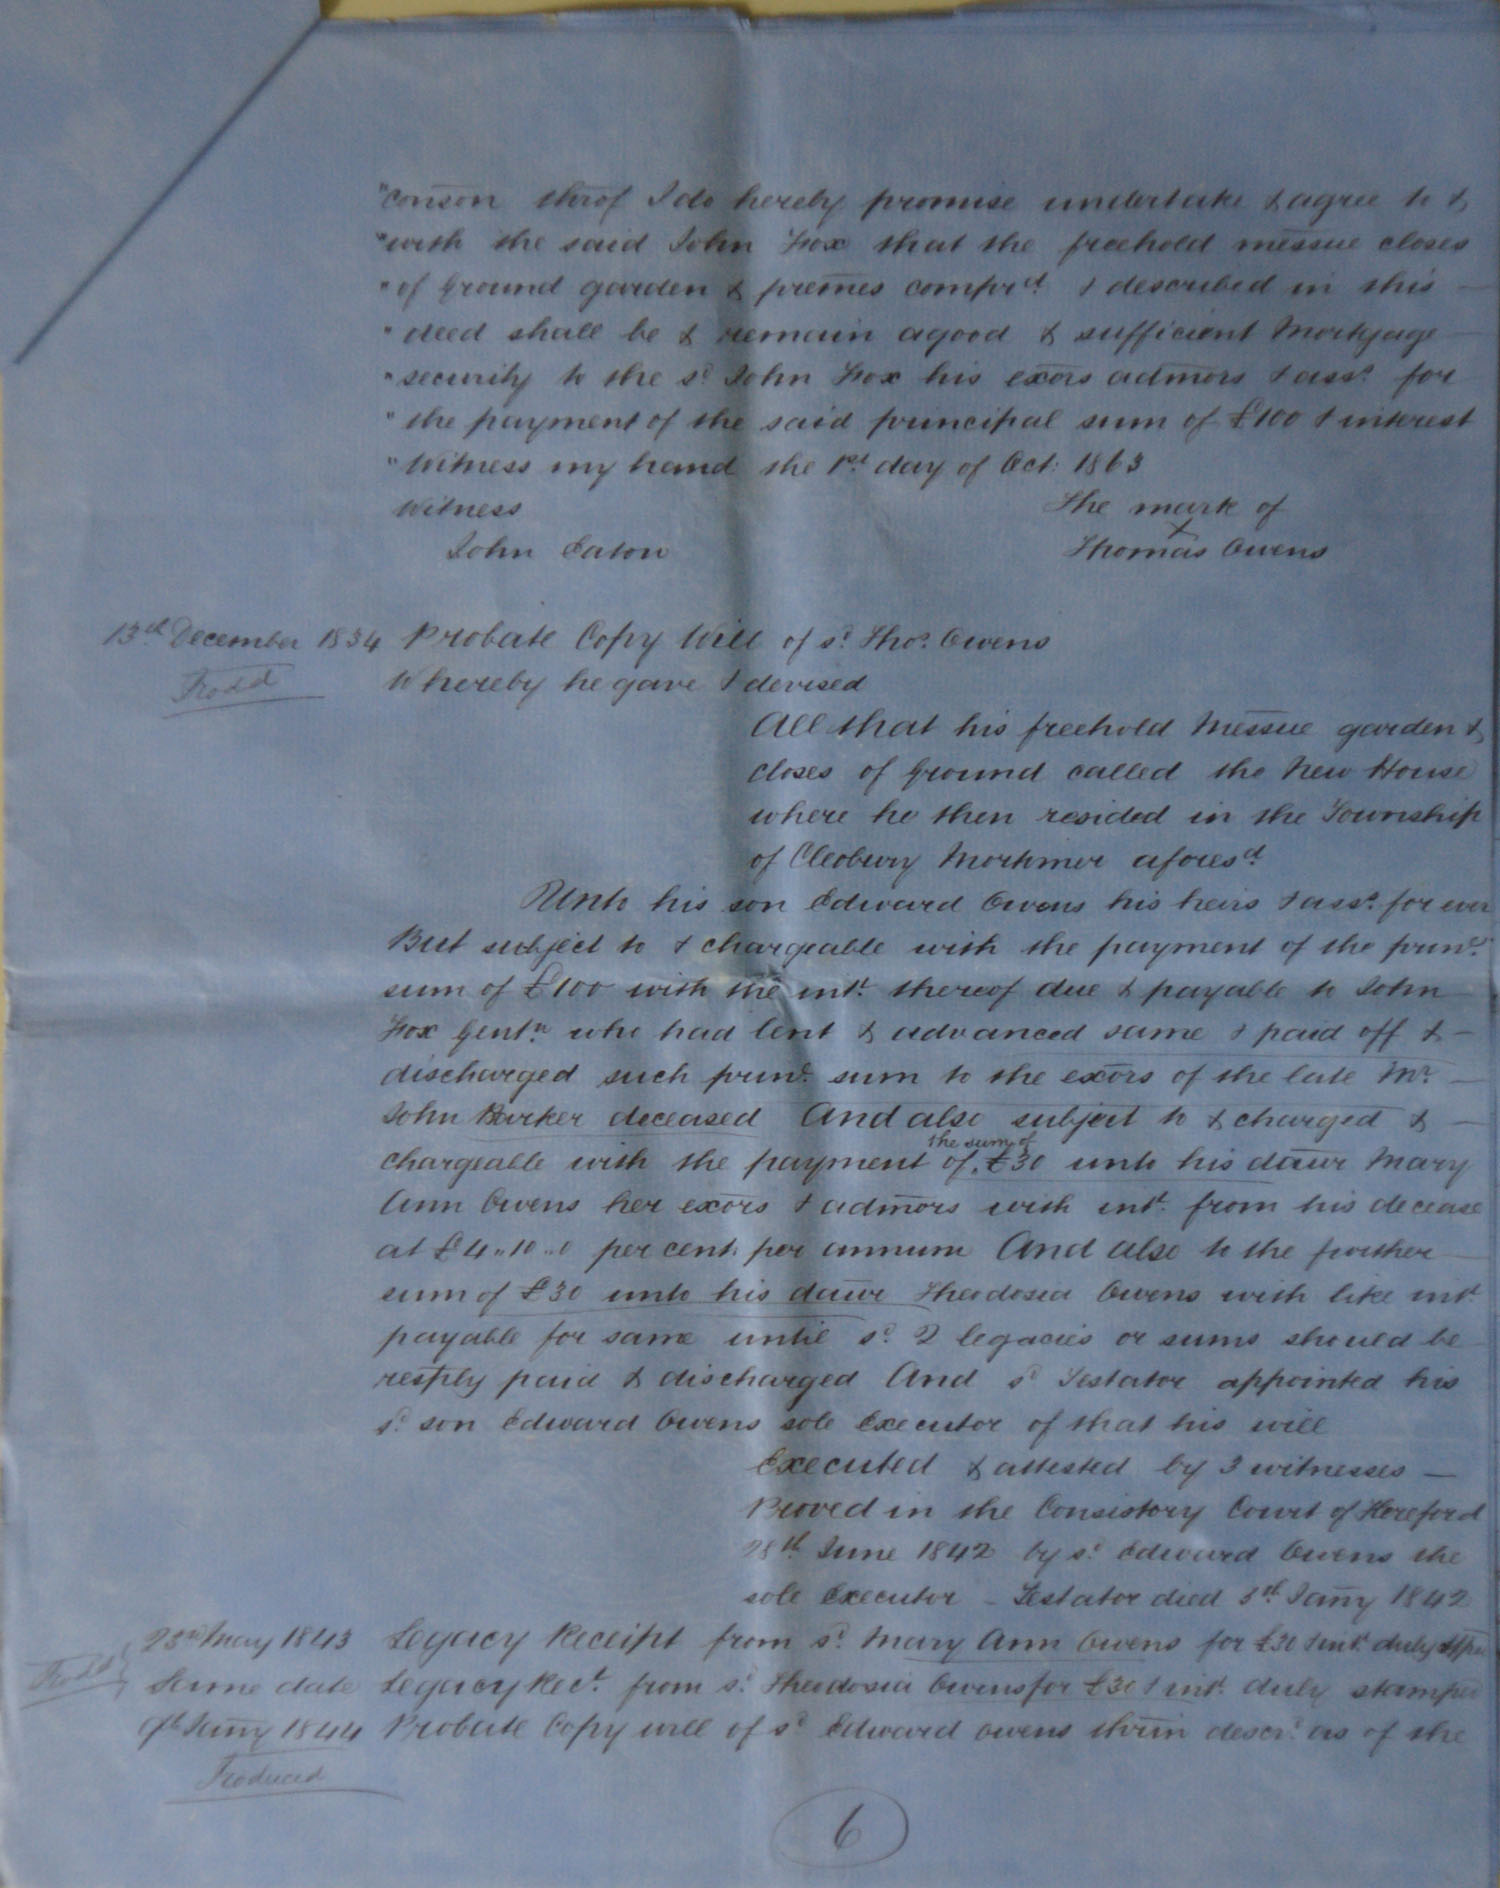 "conson throf I do hereby promise undertake & agree to &
"with the said John Fox that the freehold messue closes
"of Ground garden & premes comprd. & described in this —
"deed shall be & remain a good & sufficient Mortgage —
"security to the sd. John Fox his exors admors & asss. for
"the payment of the said principal sum of £100 & interest
"Witness my hand the 1st. day of Oct: 1863
Witness The mark of
x
John Eaton Thomas Owens
13th December 1834 Probate Copy Will of sd. Thos. Owens
Prodd Whereby he gave & devised
All that his freehold Messue garden &
closes of Ground called the New House
where he then resided in the Township
of Cleobury Mortimer aforesd.
Unto his son Edward Owens his heirs & asss. for ever
But subject to & chargeable with the payment of the prinl.
sum of £100 with the intt. thereof due & payable to John
Fox Gentn. who had lent & advanced same & paid off & —
discharged such prinl. sum to the exors of the late Mr. —
John Barker deceased And also subject to & charged & —
chargeable with the payment of the sum of £30 unto his daur Mary
Ann Owens her exors & admors with intt. from his decease
at £4..10..0 per cent. per annum And also to the further —
sum of £30 unto his daur Theodosia Owens with like intt.
payable for same until sd. 2 legacies or sums should be
restply paid & discharged And sd. Testator appointed his
sd. son Edward Owens sole Executor of that his will
Executed & attested by 3 witnesses —
Proved in the Consistory Court of Hereford
28th. June 1842 by sd. Edward Owens the
sole Executor — Testator died 5th. Jany 1842
23rd May 1843 Legacy Receipt from sd. Mary Ann Owens for £30 & intt. duly
Prodd
Same date Legacy Rect. from sd. Theodosia Owens for £30 & intt. duly stamped
9th Jany 1844 Probate Copy will of sd. Edward Owens thrin descrd. as of the
Produced
6